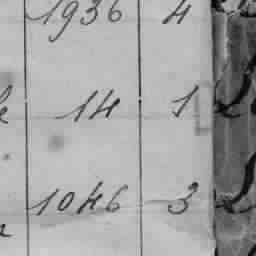 1936 4
14 1
1046 3